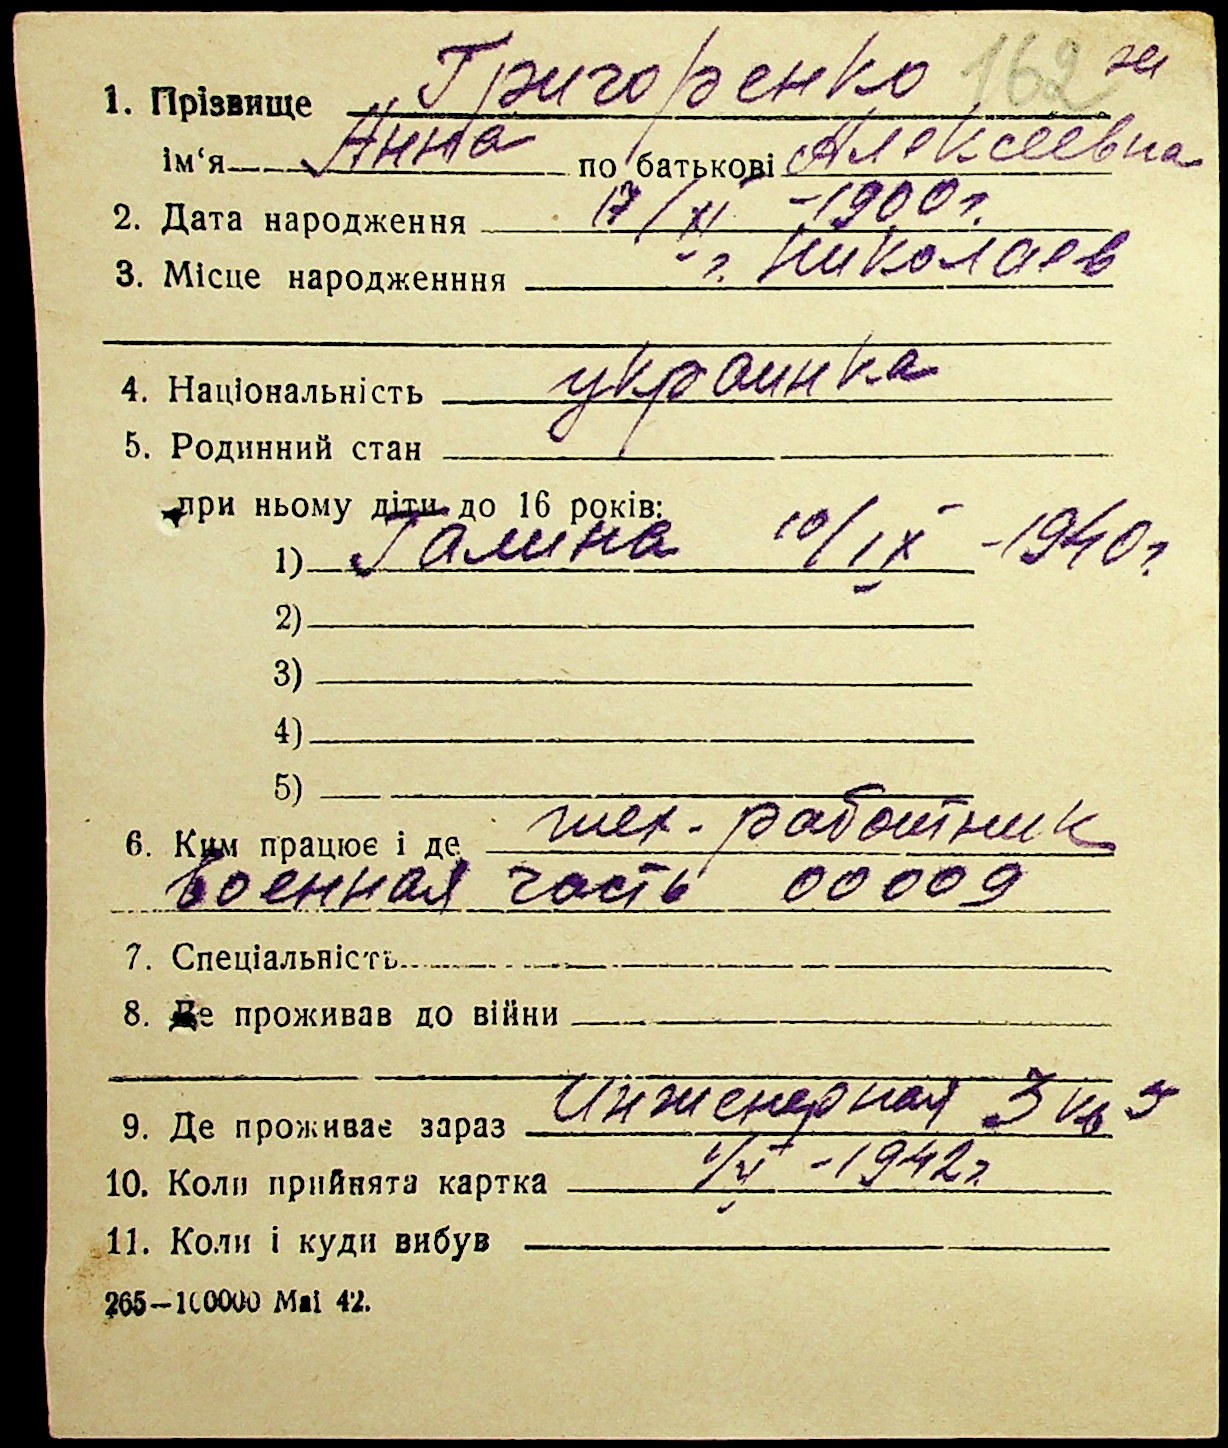 1. Прізвище Григоренко 162 ж
ім‘я Анна по батькові Алексеевна
2. Дата народження 17/XI -1900 г.
3. Місце народженння г. Николаев
4. Національність украинка
5. Родинний стан
при ньому діти до 16 років:
1) Галина 10/IX -1940 г.
2)
3)
4)
5)
6. Ким працює і де тех. работник
Военная часть 00009
7. Спеціальність
8. Де проживав до війни
9. Де проживає зараз Инженерная 3 кв
10. Коли прийнята картка -1942 г.
11. Коли і куди вибув
265—100000 Маі 42.